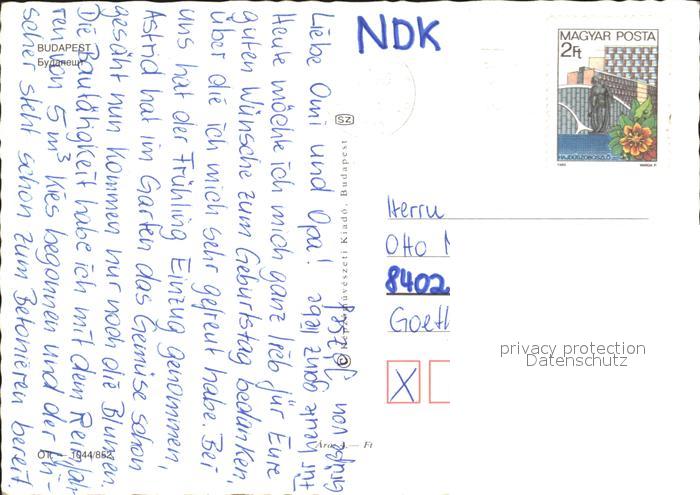 Liebe Omi und Opa!
Heute möchte ich mich ganz lieb für Eure
guten Wünsche zum Geburtstag bedanken,
über die ich mich sehr gefreut habe. Bei
uns hat der Frühling Einzug genommen,
Astrid hat im Garten das Gemüse schon
gesäht nun kommen nur noch die Blumen.
Die Bautätigkeit habe ich mit dem Reinfah
ren von 5 m³ Kies begonnen und der Mi-
scher steht schon zum Betonieren bereit.
Für heute ganz liebe
von
BUDAPEST
Будапешт
Képzőművészeti Kiadó, Budapest
SZ
Ára: 1.— Ft
NDK
MAGYAR POSTA
2Ft
HAJDÚSZOBOSZLÓ
Herrn
Otto
8402
Goeth
X
privacy protection
Datenschutz